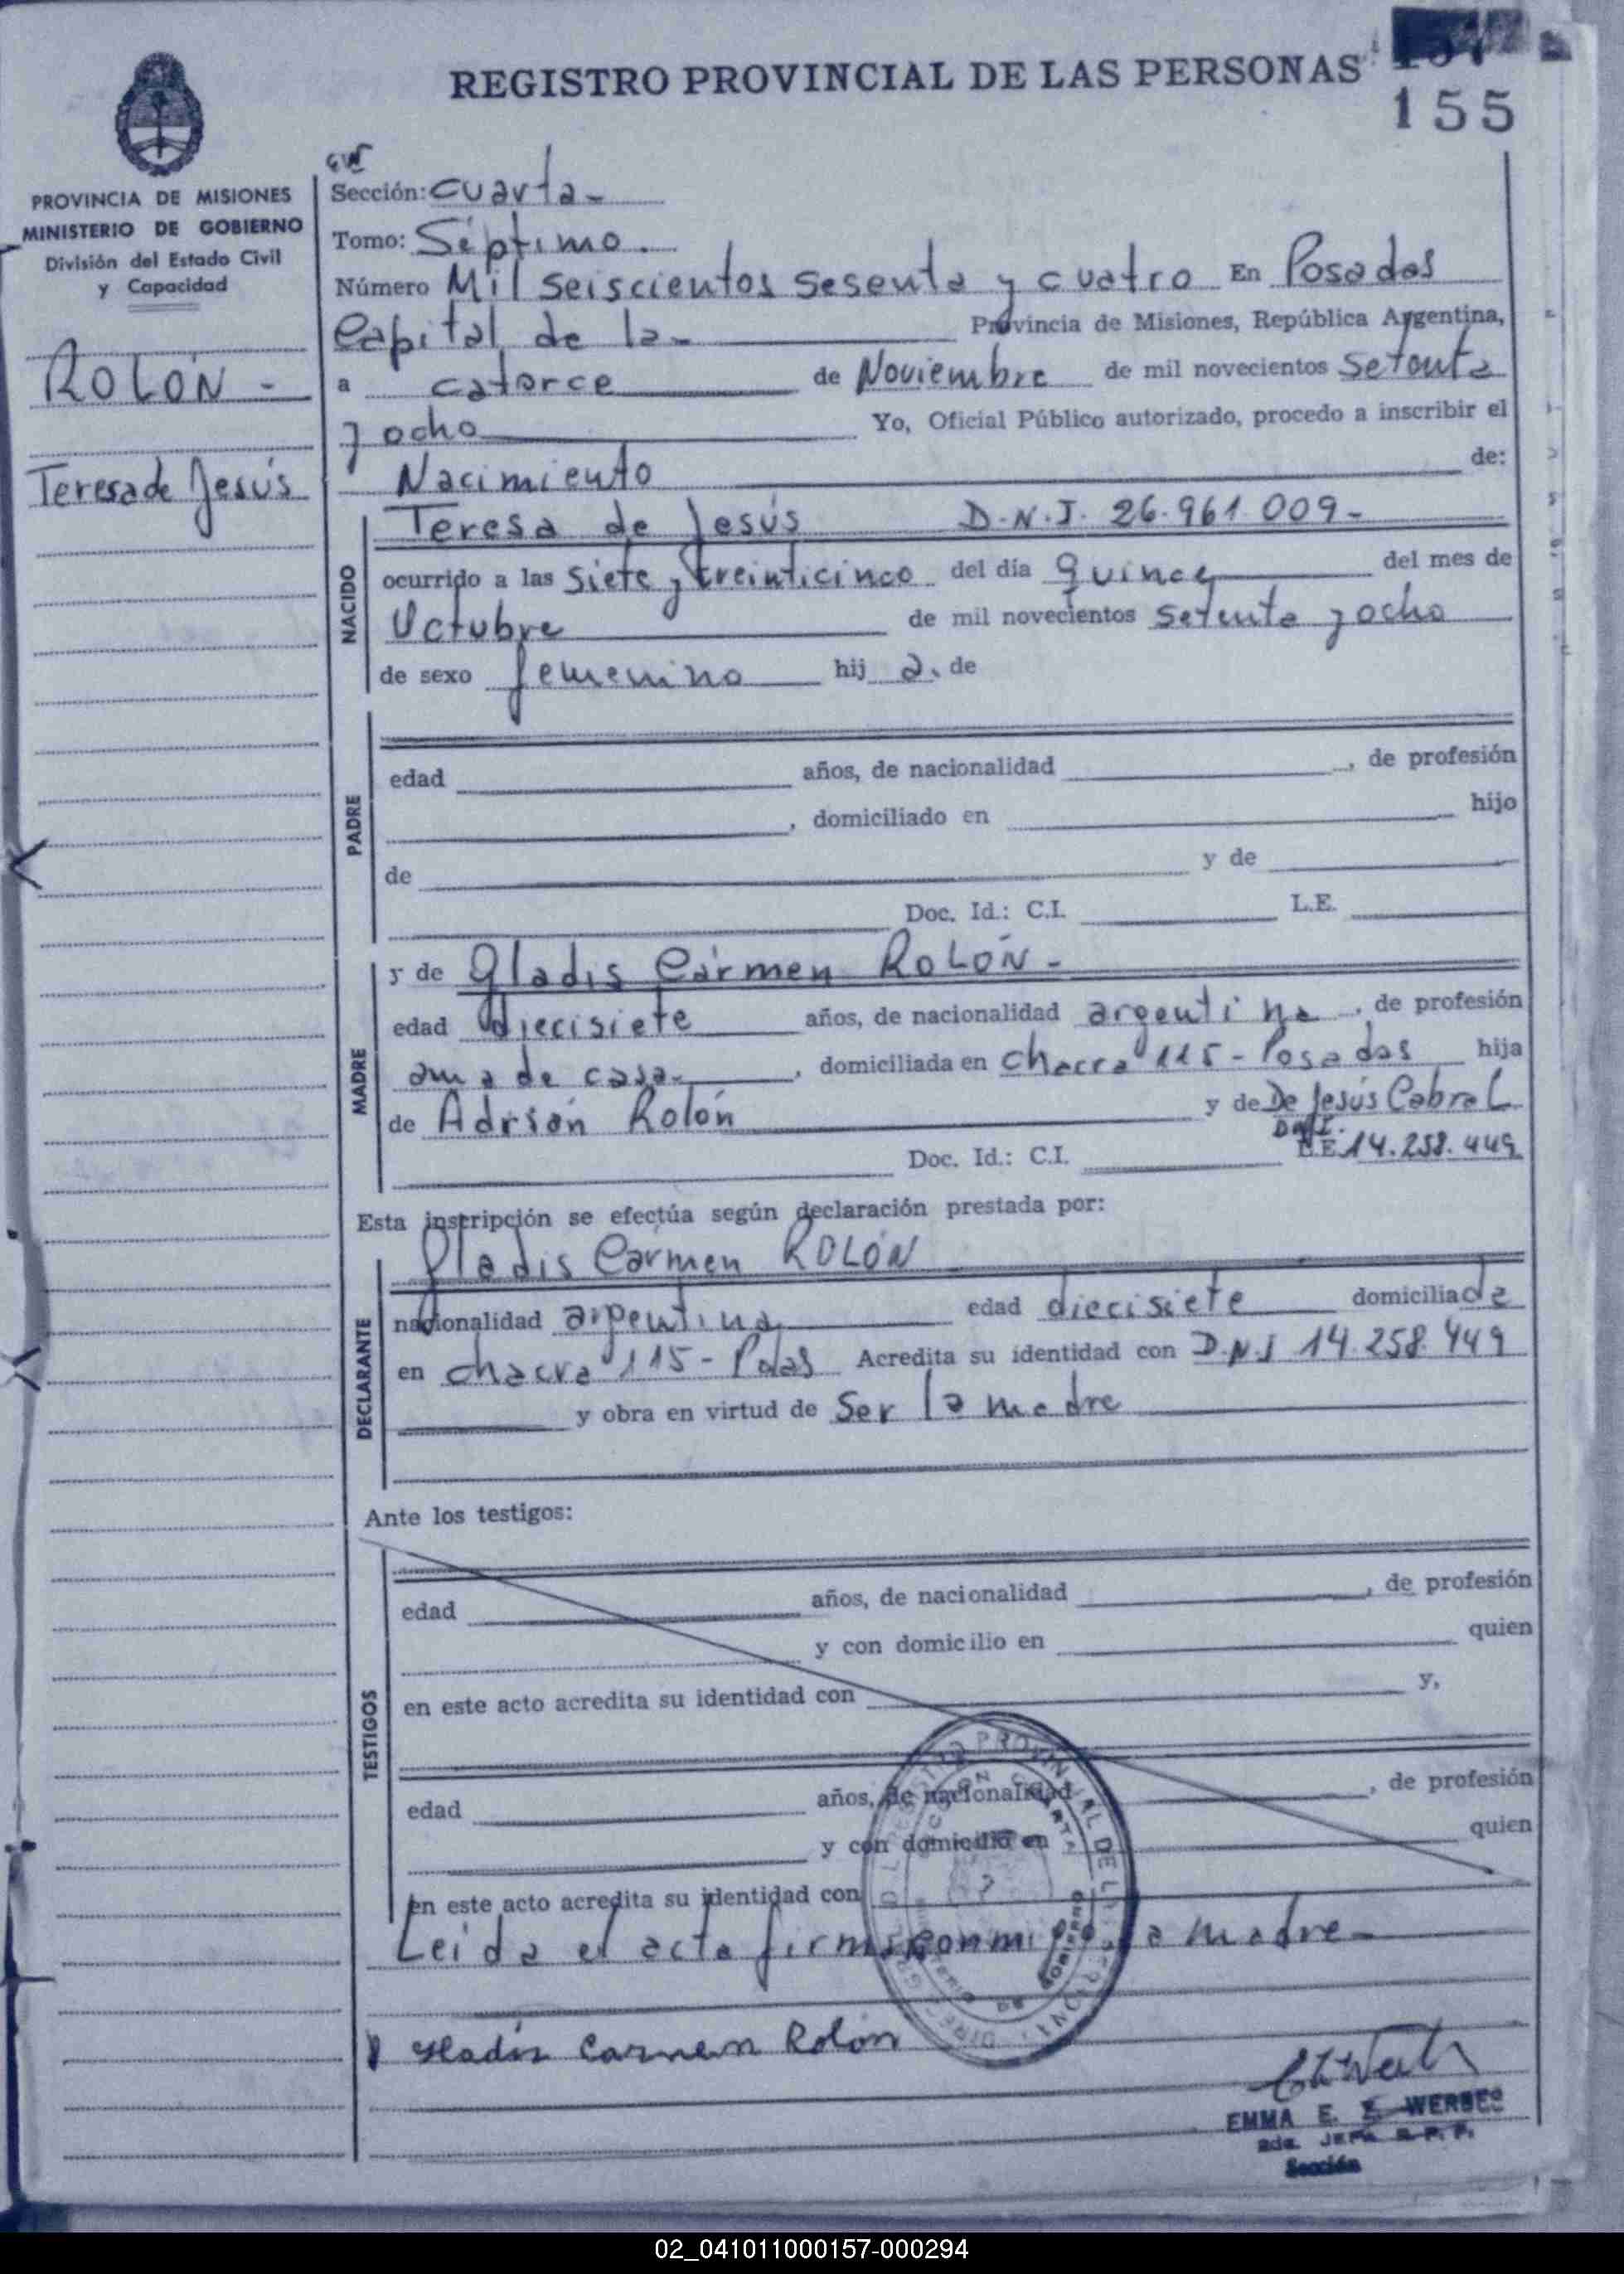 REGISTRO PROVINCIAL DE LAS PERSONAS
155
PROVINCIA DE MISIONES
MINISTERIO DE GOBIERNO
División del Estado Civil
y Capacidad
ROLÓN -
Teresa de Jesús
Sección: cuarta -
Tomo: Séptimo.
Número Mil seiscientos sesenta y cuatro En Posadas
Capital de la - Provincia de Misiones, República Argentina,
a catorce de Noviembre de mil novecientos setenta
y ocho Yo, Oficial Público autorizado, procedo a inscribir el
Nacimiento de:
NACIDO
Teresa de Jesús D.N.I. 26.961.009-
ocurrido a las siete y treinticinco del día quince del mes de
Octubre de mil novecientos setenta y ocho
de sexo femenino hij a. de
PADRE
edad años, de nacionalidad , de profesión
, domiciliado en hijo
de y de
Doc. Id.: C.I. L.E.
MADRE
y de Gladis Cármen ROLÓN -
edad diecisiete años, de nacionalidad argentina , de profesión
ama de casa- , domiciliada en chacra 115 - Posadas hija
de Adrián Rolón y de De Jesús Cabral
Doc. Id.: C.I. D.N.I. L.E. 14.258.449
Esta inscripción se efectúa según declaración prestada por:
DECLARANTE
Gladis Carmen ROLÓN
nacionalidad argentina edad diecisiete domiciliada
en chacra 115 - Pdas Acredita su identidad con D.N.I 14.258.449
y obra en virtud de ser la madre
Ante los testigos:
TESTIGOS
edad años, de nacionalidad , de profesión
y con domicilio en quien
en este acto acredita su identidad con y,
edad años, de nacionalidad , de profesión
y con domicilio en quien
en este acto acredita su identidad con
Leida el acta firma conmigo la madre-
Gladis Carmen Rolón
EMMA E. WERBES
Sección
02_041011000157-000294